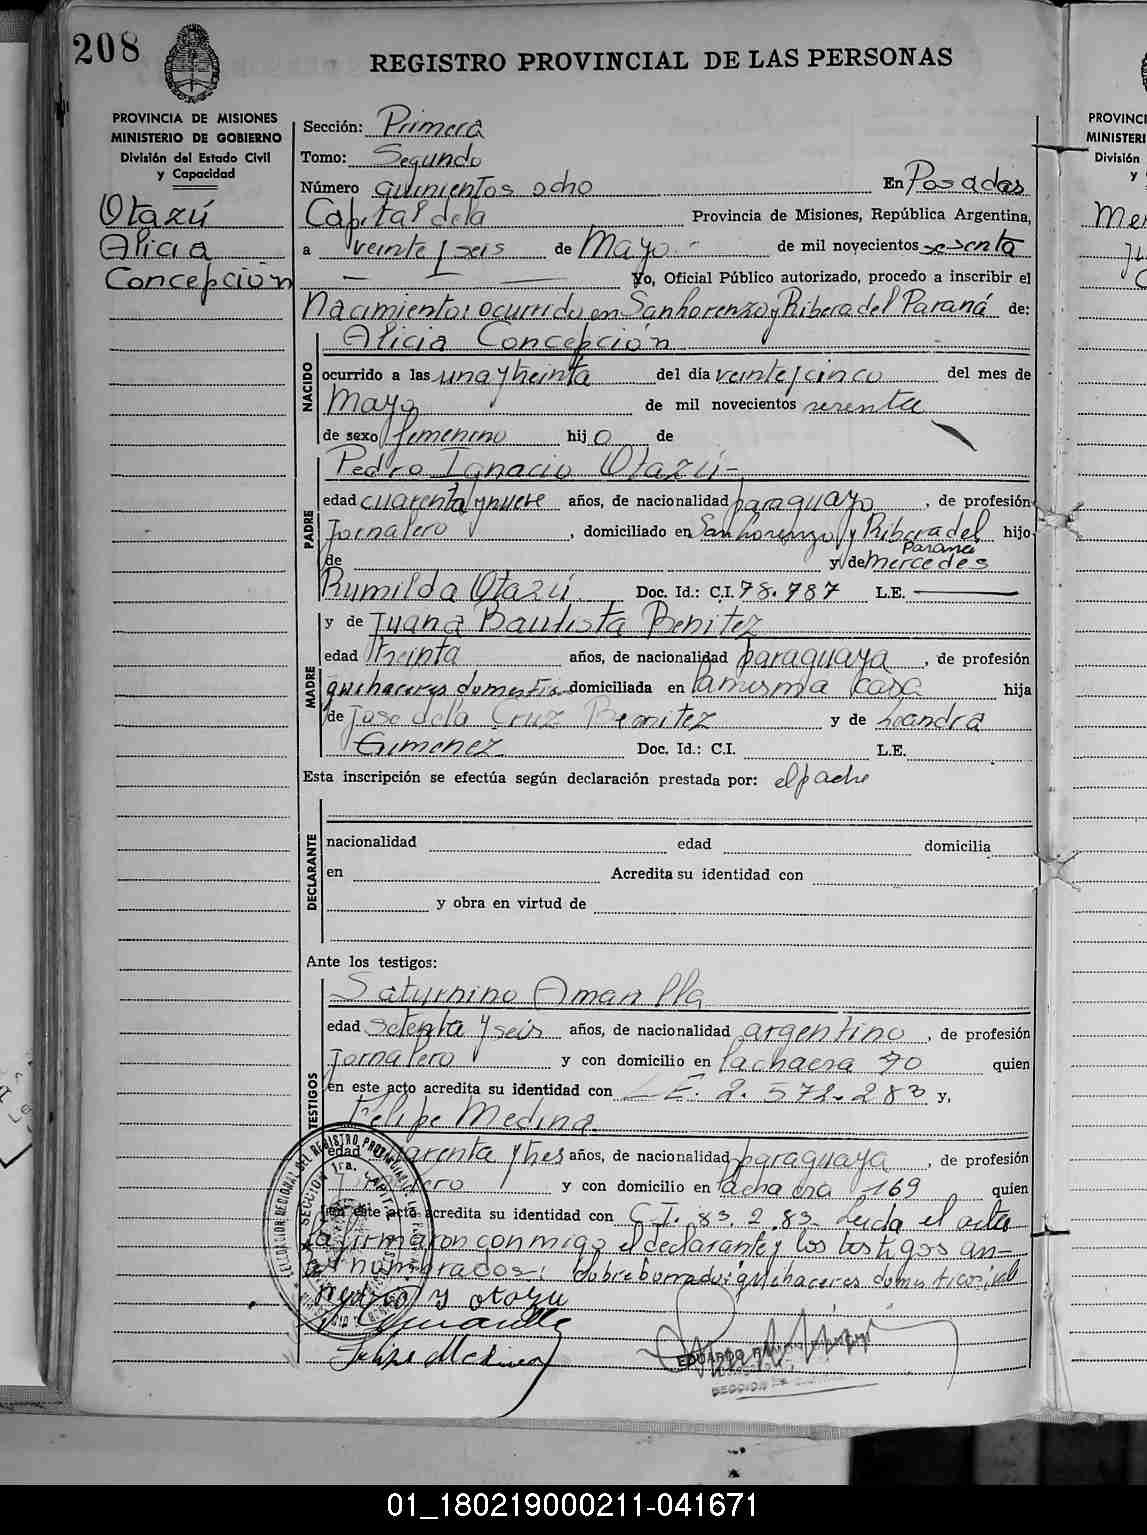 208
REGISTRO PROVINCIAL DE LAS PERSONAS
PROVINCIA DE MISIONES
MINISTERIO DE GOBIERNO
División del Estado Civil
y Capacidad
Otazú
Alicia
Concepción
Sección: Primera
Tomo: Segundo
Número quinientos ocho En Posadas
Capital de la Provincia de Misiones, República Argentina,
a veinte y seis de Mayo de mil novecientos sesenta
Yo, Oficial Público autorizado, procedo a inscribir el
Nacimiento: ocurrido en San Lorenzo y Ribera del Paraná de:
NACIDO
Alicia Concepción
ocurrido a las una y treinta del día veinte y cinco del mes de
Mayo de mil novecientos sesenta
de sexo femenino hij a de
PADRE
Pedro Ignacio Otazú
edad cuarenta y nueve años, de nacionalidad paraguayo, de profesión
Jornalero, domiciliado en San Lorenzo y Ribera del hijo
Paraná
de y de Mercedes
Rumilda Otazú Doc. Id.: C.I. 78.787 L.E.
MADRE
y de Juana Bautista Benitez
edad treinta años, de nacionalidad paraguaya, de profesión
quihaceres domesticos domiciliada en la misma casa hija
de Jose de la Cruz Benitez y de Leandra
Gimenez Doc. Id.: C.I. L.E.
Esta inscripción se efectúa según declaración prestada por: el padre
DECLARANTE
nacionalidad edad domicilia
en Acredita su identidad con
y obra en virtud de
Ante los testigos:
TESTIGOS
Saturnino Amarilla
edad setenta y seis años, de nacionalidad argentino, de profesión
Jornalero y con domicilio en la chacra 70 quien
en este acto acredita su identidad con L.E. 2.572.283 y,
Felipe Medina
edad cuarenta y tres años, de nacionalidad paraguaya, de profesión
Jornalero y con domicilio en la chacra 169 quien
en este acto acredita su identidad con C.I. 83.283 Leida el acta
la firmaron conmigo el declarante y los testigos an-
tes numbrados: sobre borrado: quihaceres domesticos: vale
Pedro y otazu
Amarilla
Felipe Medina
EDUARDO
SECCION
PROVINC
MINISTERI
División
y
Me
01_180219000211-041671